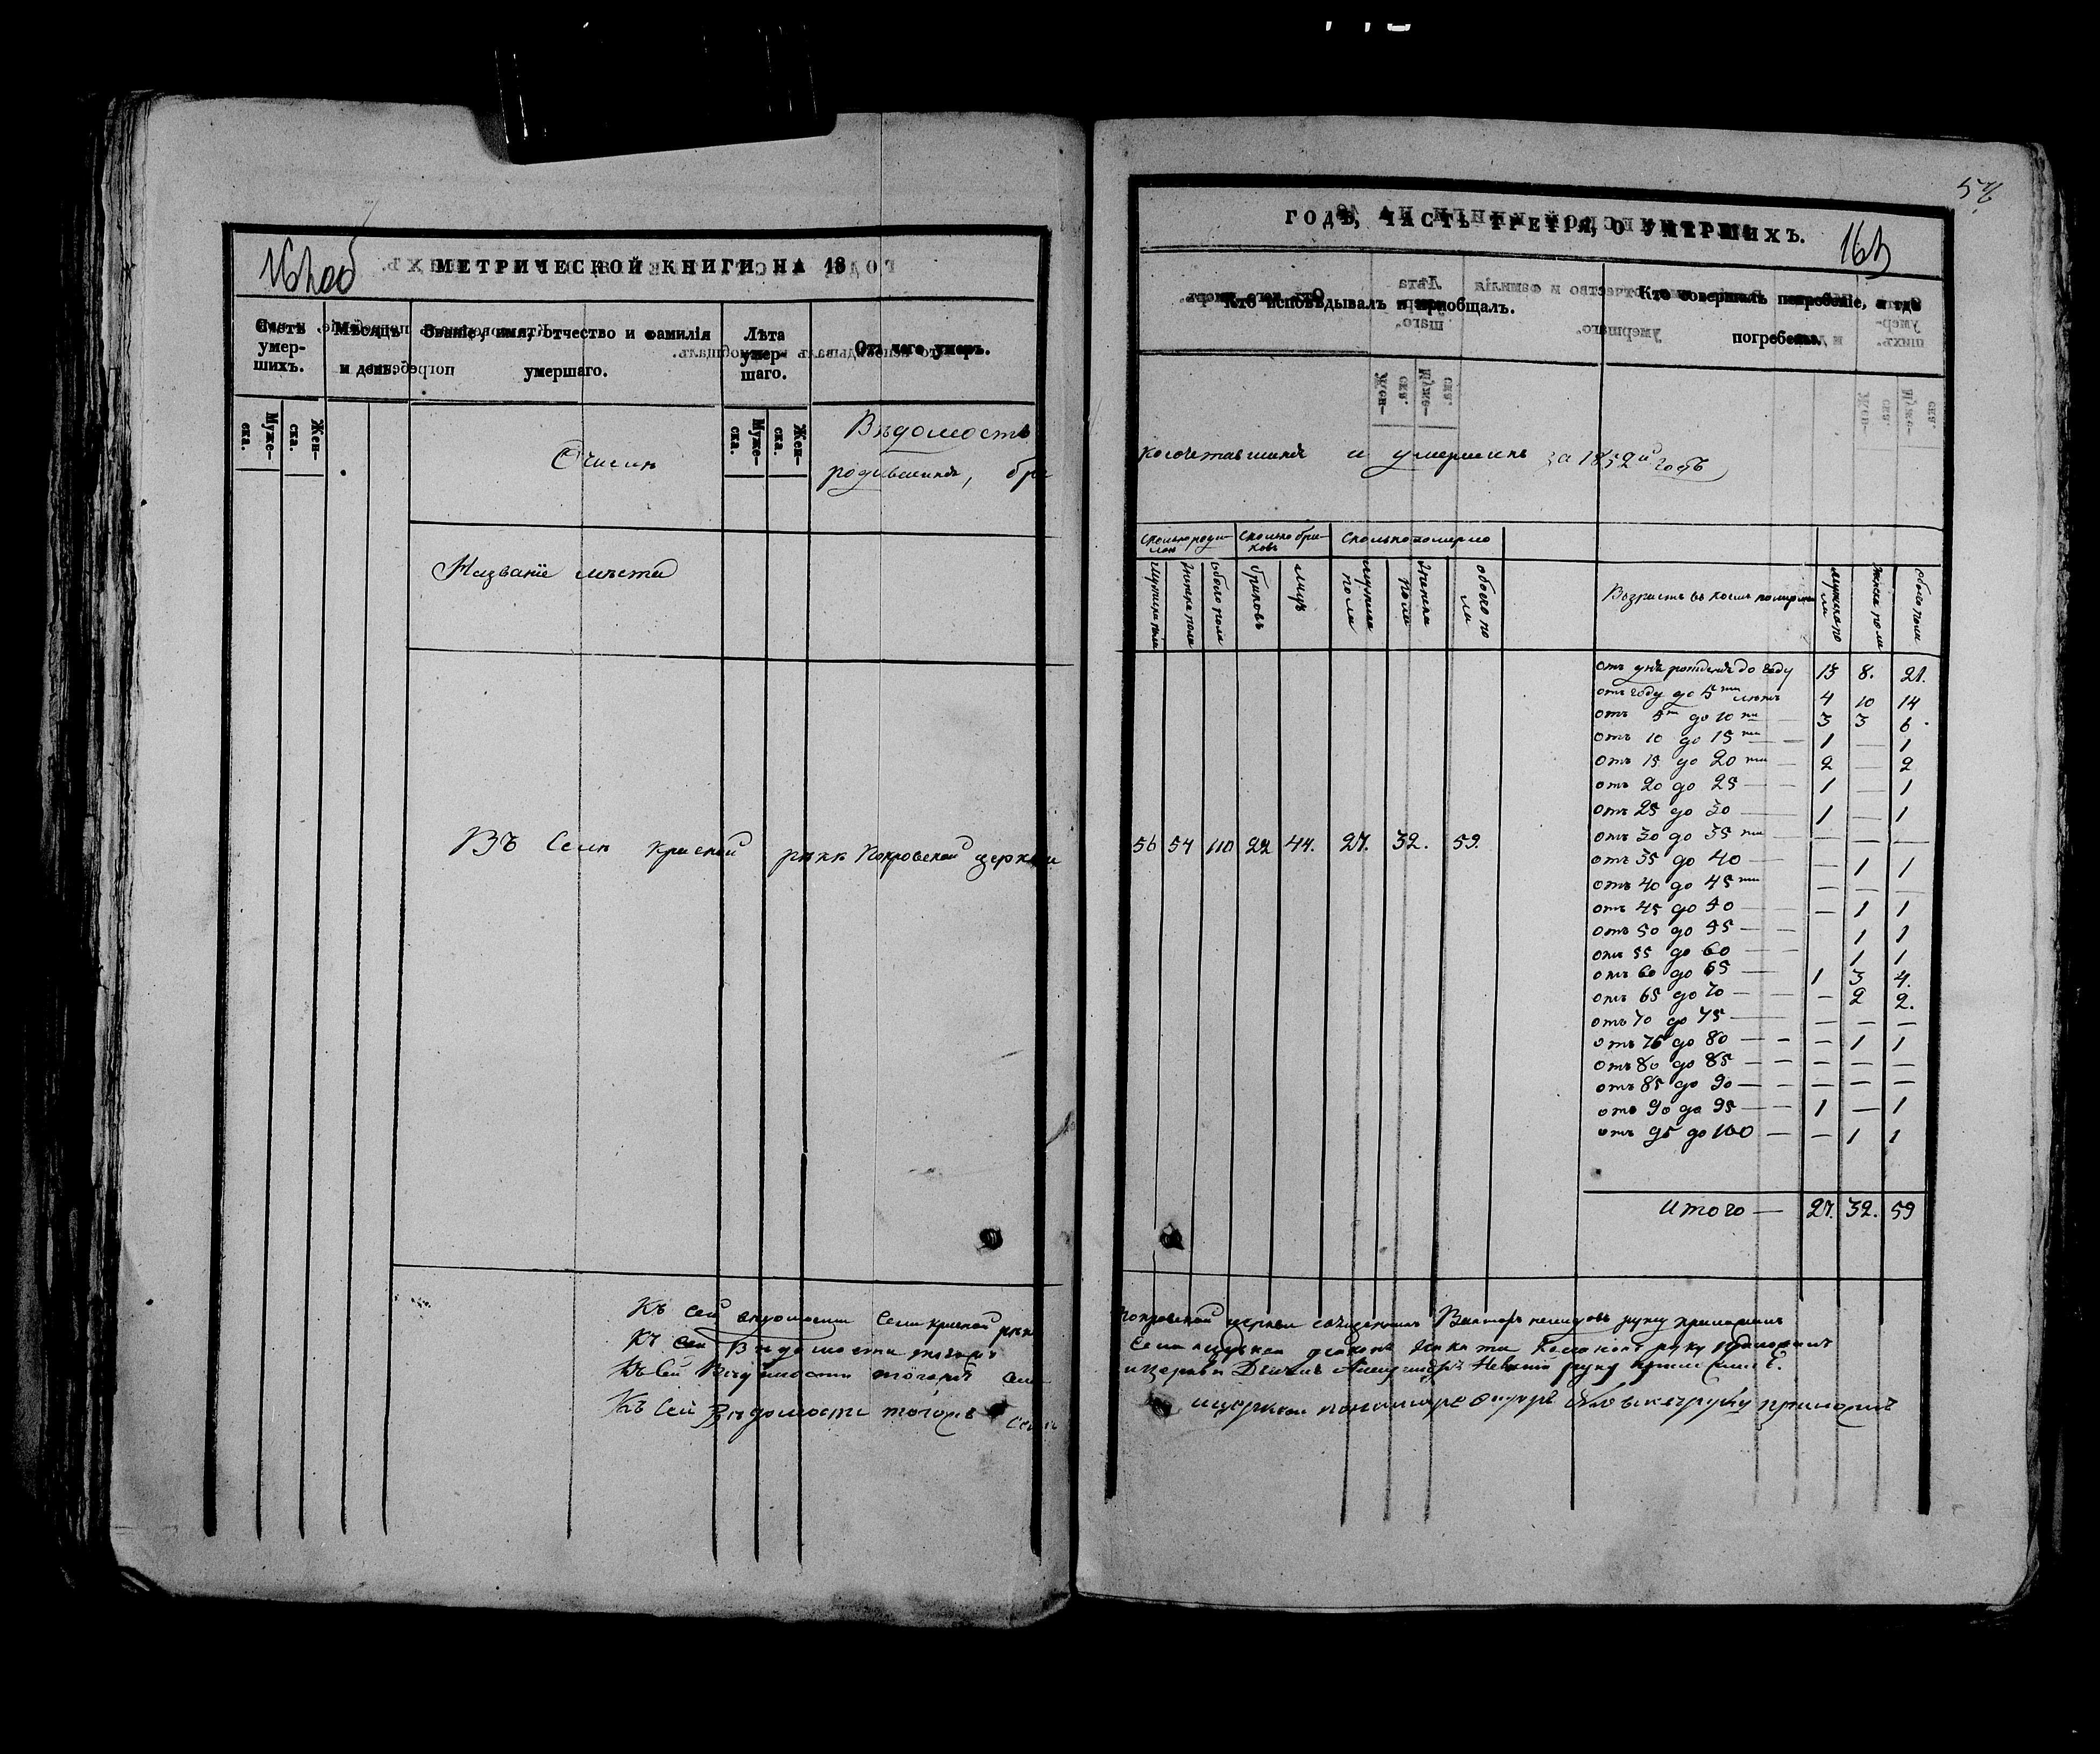 МЕТРИЧЕСКОЙ КНИГИ НА 18
Счетъ умер-шихъ.
Муже-ска.
Жен-ска.
Мѣсяцъ и день.
Званіе, имя, отчество и фамилія умершаго.
Лѣта умер-шаго.
Муже-ска.
Жен-ска.
Отъ чего умеръ.
О числѣ
Вѣдомость
родившихся, бра
Названіе мѣста
Въ Селѣ Красной рѣкѣ Покровской церкви
Къ сей вѣдомости Села Красной рѣки
Къ сей Вѣдомости тогожъ
Къ Сей Вѣдомости тогожъ Села
Къ Сей Вѣдомости тогожъ Села
57
ГОДЪ, ЧАСТЬ ТРЕТІЯ, О УМЕРШИХЪ.
163
Кто исповѣдывалъ и пріобщалъ.
Кто совершалъ погребеніе, и гдѣ погребены.
косочетавшихся и умершихъ за 1852й годъ
Сколько роди-лось
Сколько бра-ковъ
Сколько померло
мужеска пола
женска пола
обоего пола
браковъ
лицъ
мужеска пола
женска пола
обоего пола
Възрастъ въ коемъ померли
мужеска пола
женска пола
обоего пола
56 54 110 22 44. 27. 32. 59.
отъ дня рожденія до году 13 8. 21.
отъ году до 5ти лѣтъ 4 10 14
отъ 5ти до 10ти — 3 3 6.
отъ 10 до 15ти — — 1 — 1
отъ 15 до 20ти — 2 — 2
отъ 20 до 25 — — 1 — 1
отъ 25 до 30 — 1 — 1
отъ 30 до 35ти — — — —
отъ 35 до 40 — — 1 1
отъ 40 до 45ти — — — —
отъ 45 до 50 — — — 1 1
отъ 50 до 55 — — 1 1
отъ 55 до 60 — — 1 1
отъ 60 до 65 — 1 3 4.
отъ 65 до 70 — — — 2 2.
отъ 70 до 75 — — — —
отъ 75 до 80 — — — 1 1
отъ 80 до 85 — — — — —
отъ 85 до 90 — — — — —
отъ 90 до 95 — — 1 — 1
отъ 95 до 100 — — 1 1
Итого — 27. 32. 59
Покровской церкви священникъ Викторъ руку приложилъ
Села церкви діаконъ руку приложилъ
церкви Дьячекъ Александръ Невскій руку приложилъ.
церкви пономарь Федоръ руку приложилъ